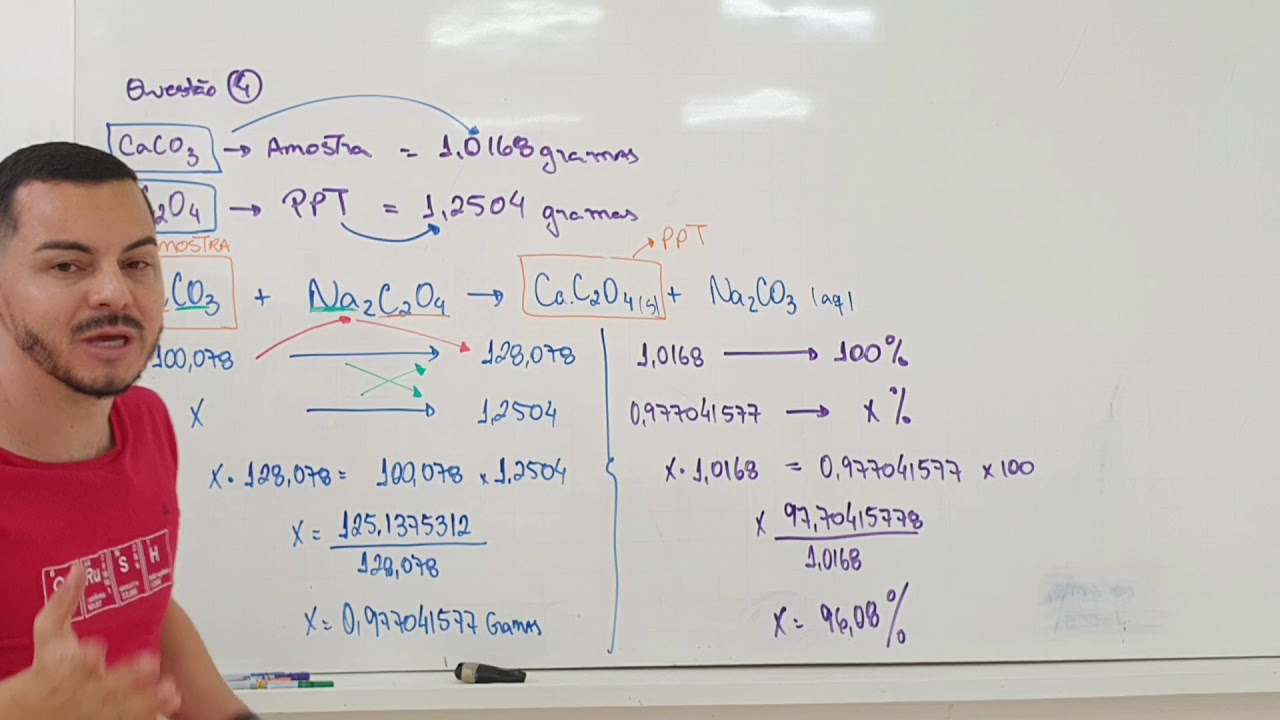 Questão 4
CaCO3 → Amostra = 1,0168 gramas
C2O4 → PPT = 1,2504 gramas
MOSTRA
PPT
CO3 + Na2C2O4 → CaC2O4(s) + Na2CO3 (aq)
100,078 → 128,078
x → 1,2504
x · 128,078 = 100,078 x 1,2504
x = 125,1375312
128,078
x = 0,977041577 Gramas
1,0168 → 100%
0,977041577 → x %
x · 1,0168 = 0,977041577 x 100
x 97,70415778
1,0168
x = 96,08%
Ru S H